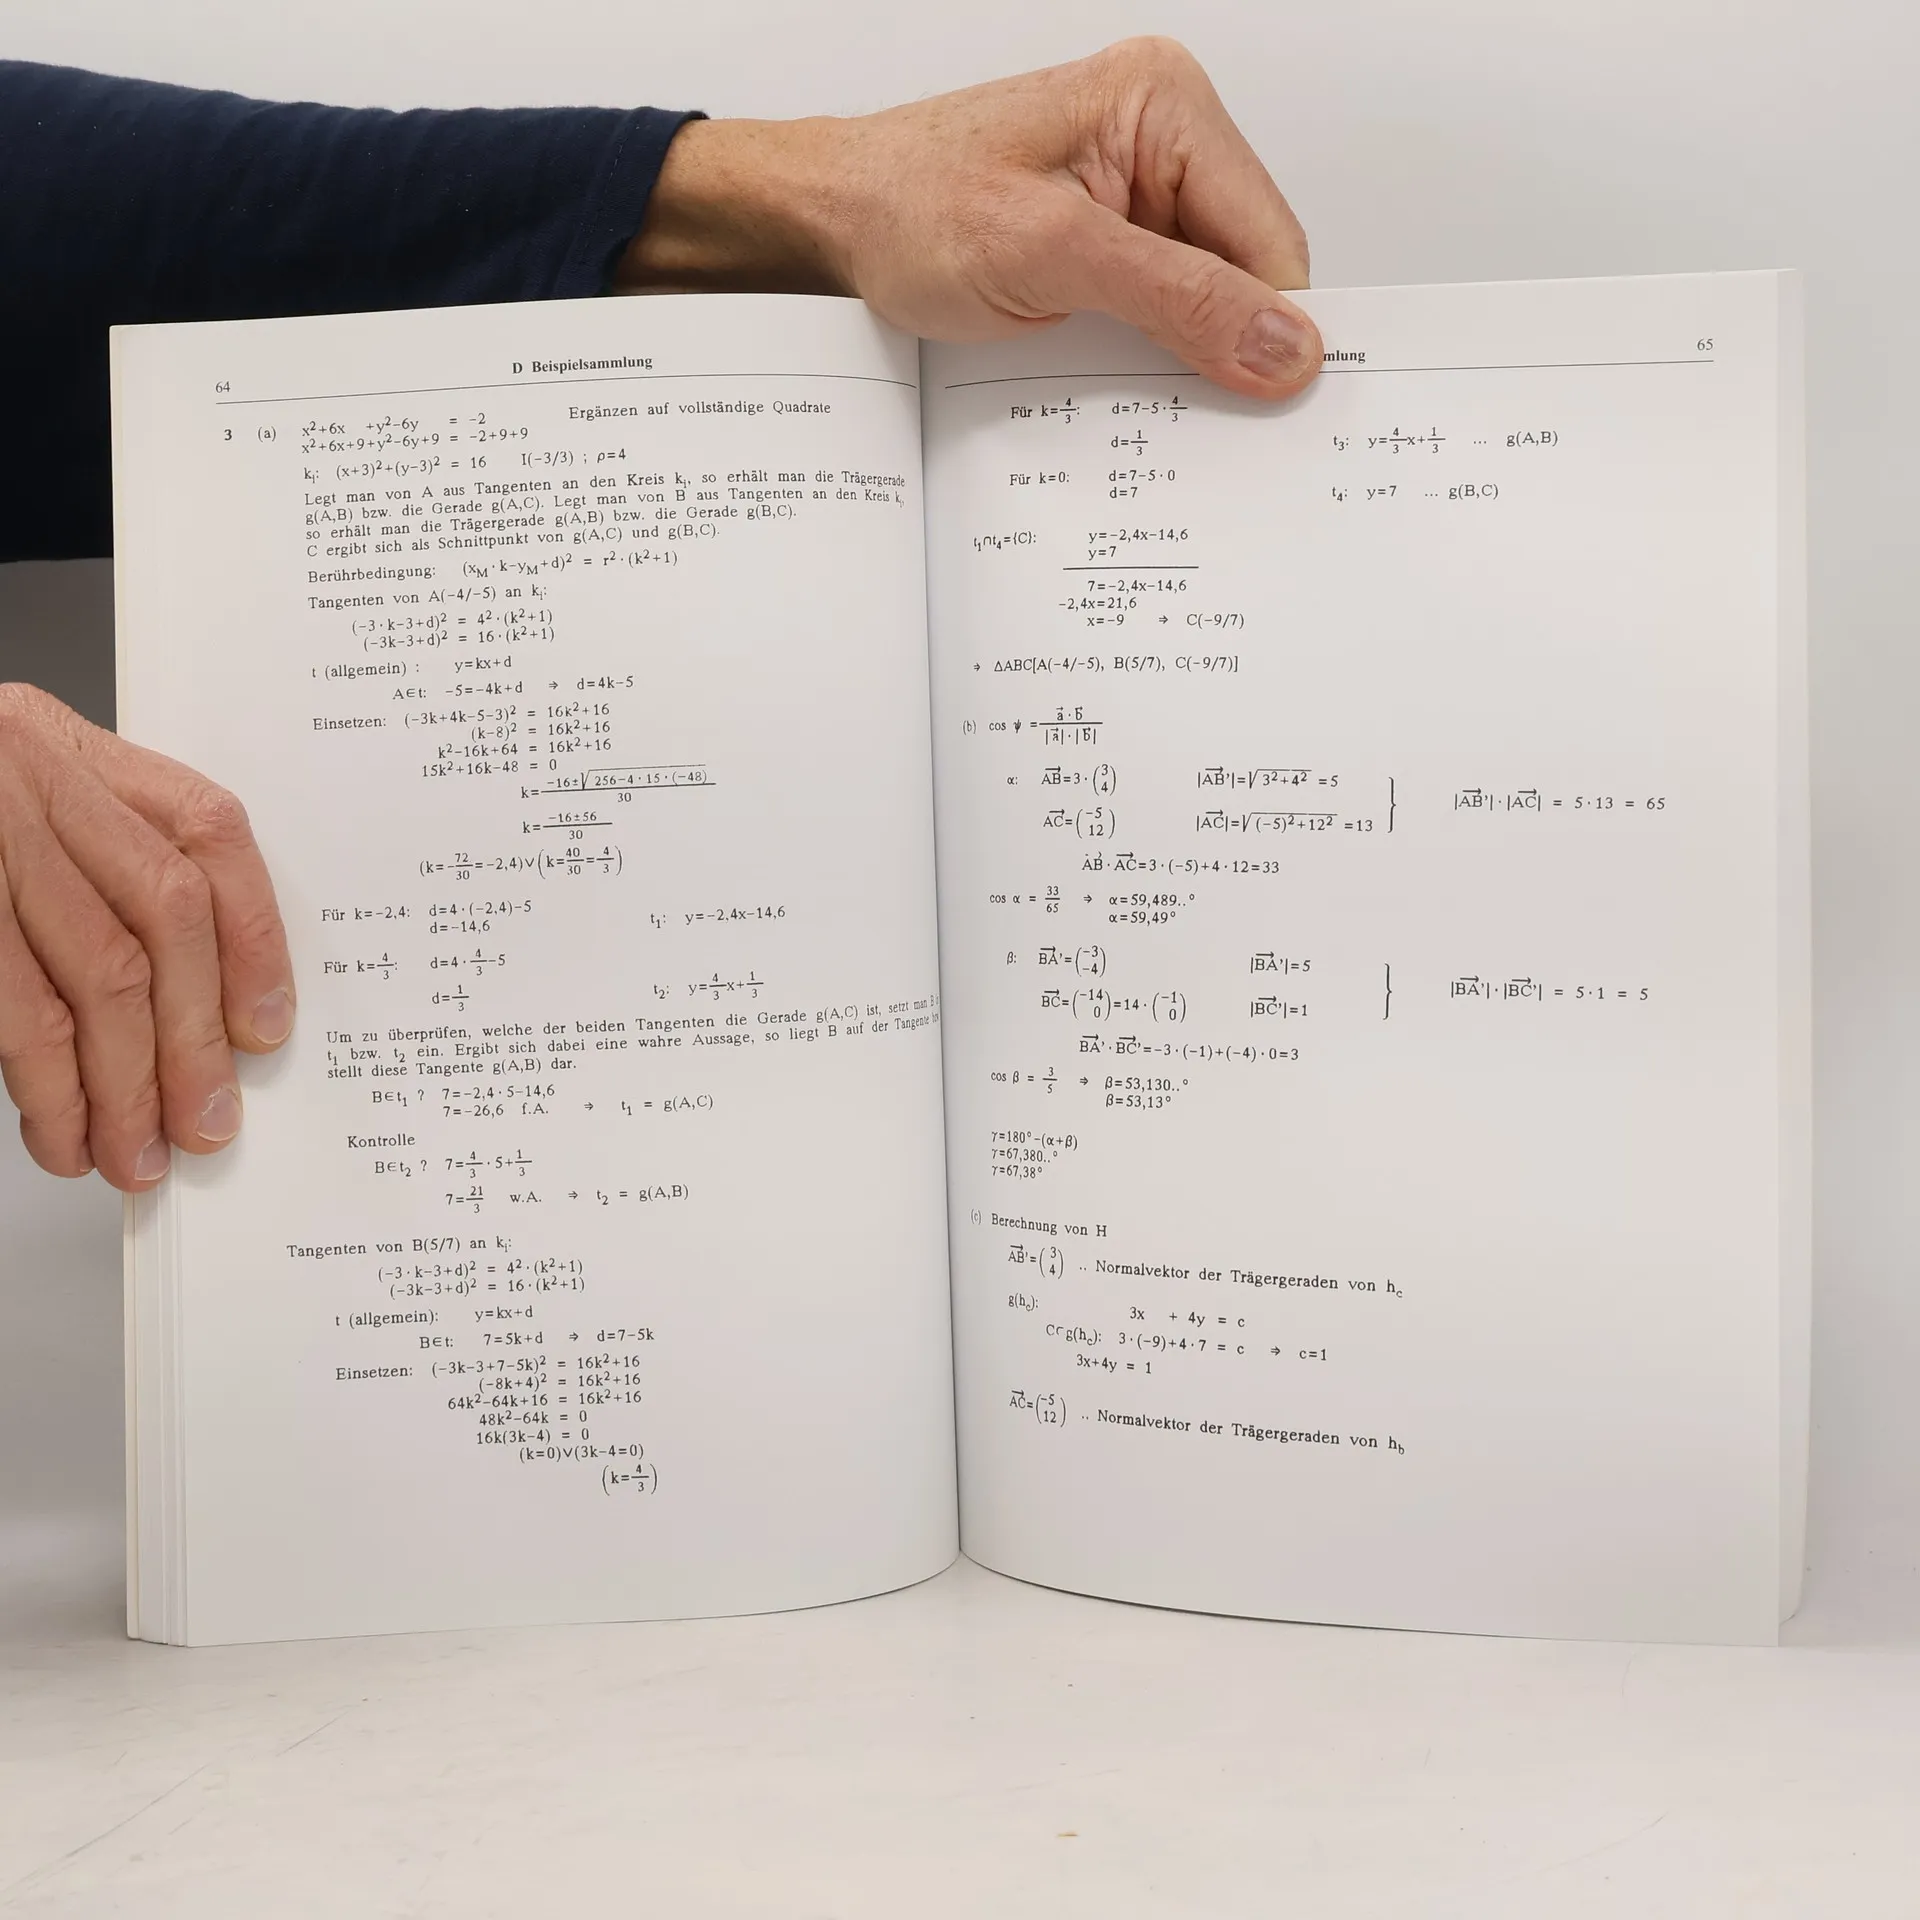 64
D Beispielsammlung
3 (a) x²+6x +y²-6y = -2 Ergänzen auf vollständige Quadrate
x²+6x+9+y²-6y+9 = -2+9+9
kᵢ: (x+3)²+(y-3)² = 16 I(-3/3) ; ρ=4
Legt man von A aus Tangenten an den Kreis kᵢ, so erhält man die Trägergerade
g(A,B) bzw. die Gerade g(A,C). Legt man von B aus Tangenten an den Kreis kᵢ,
so erhält man die Trägergerade g(A,B) bzw. die Gerade g(B,C).
C ergibt sich als Schnittpunkt von g(A,C) und g(B,C).
Berührbedingung: (x_M·k-y_M+d)² = r²·(k²+1)
Tangenten von A(-4/-5) an kᵢ:
(-3·k-3+d)² = 4²·(k²+1)
(-3k-3+d)² = 16·(k²+1)
t (allgemein) : y=kx+d
A∈t: -5=-4k+d ⇒ d=4k-5
Einsetzen: (-3k+4k-5-3)² = 16k²+16
(k-8)² = 16k²+16
k²-16k+64 = 16k²+16
15k²+16k-48 = 0
k=(-16±√256-4·15·(-48))/30
k=(-16±56)/30
(k=-72/30=-2,4)∨(k=40/30=4/3)
Für k=-2,4: d=4·(-2,4)-5
d=-14,6 t₁: y=-2,4x-14,6
Für k=4/3: d=4·4/3-5
d=1/3 t₂: y=4/3x+1/3
Um zu überprüfen, welche der beiden Tangenten die Gerade g(A,C) ist, setzt man B
t₁ bzw. t₂ ein. Ergibt sich dabei eine wahre Aussage, so liegt B auf der Tangente
stellt diese Tangente g(A,B) dar.
B∈t₁ ? 7=-2,4·5-14,6
7=-26,6 f.A. ⇒ t₁ = g(A,C)
Kontrolle
B∈t₂ ? 7=4/3·5+1/3
7=21/3 w.A. ⇒ t₂ = g(A,B)
Tangenten von B(5/7) an kᵢ:
(-3·k-3+d)² = 4²·(k²+1)
(-3k-3+d)² = 16·(k²+1)
t (allgemein): y=kx+d
B∈t: 7=5k+d ⇒ d=7-5k
Einsetzen: (-3k-3+7-5k)² = 16k²+16
(-8k+4)² = 16k²+16
64k²-64k+16 = 16k²+16
48k²-64k = 0
16k(3k-4) = 0
(k=0)∨(3k-4=0)
(k=4/3)
mlung
65
Für k=4/3: d=7-5·4/3
d=1/3 t₃: y=4/3x+1/3 ... g(A,B)
Für k=0: d=7-5·0
d=7 t₄: y=7 ... g(B,C)
t₁∩t₄={C}: y=-2,4x-14,6
y=7
7=-2,4x-14,6
-2,4x=21,6
x=-9 ⇒ C(-9/7)
⇒ ΔABC[A(-4/-5), B(5/7), C(-9/7)]
(b) cos ψ = (a⃗·b⃗)/(|a⃗|·|b⃗|)
α: AB⃗=3·(3 4) |AB'⃗|=√3²+4² =5
|AB'⃗|·|AC⃗| = 5·13 = 65
AC⃗=(-5 12) |AC⃗|=√(-5)²+12² =13
AB⃗'·AC⃗=3·(-5)+4·12=33
cos α = 33/65 ⇒ α=59,489..°
α=59,49°
β: BA⃗'=(-3 -4) |BA⃗'|=5
|BA⃗'|·|BC⃗'| = 5·1 = 5
BC⃗=(-14 0)=14·(-1 0) |BC⃗'|=1
BA⃗'·BC⃗'=-3·(-1)+(-4)·0=3
cos β = 3/5 ⇒ β=53,130..°
β=53,13°
γ=180°-(α+β)
γ=67,380..°
γ=67,38°
(c) Berechnung von H
AB⃗'=(3 4) .. Normalvektor der Trägergeraden von h_c
g(h_c): 3x + 4y = c
C∈g(h_c): 3·(-9)+4·7 = c ⇒ c=1
3x+4y = 1
AC⃗=(-5 12) .. Normalvektor der Trägergeraden von h_b